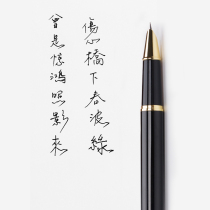 傷心橋下春波綠
曾是驚鴻照影來